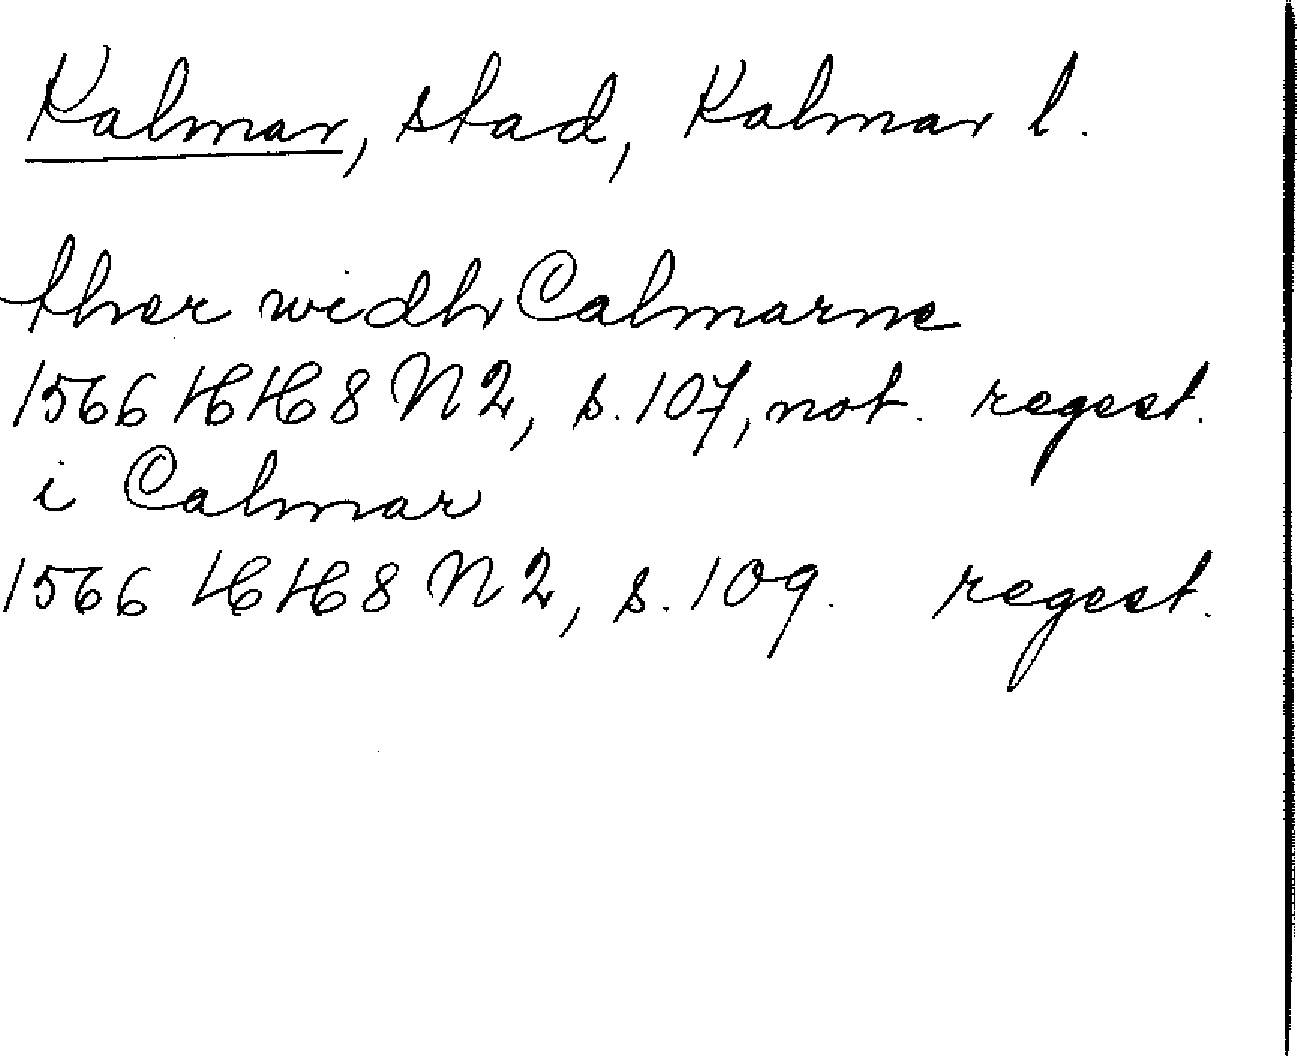 Kalmar, stad, Kalmar l.
ther widh Calmarne
1566 HH 8 N 2, s. 107, not. regest.
i Calmar
1566 HH 8 N 2, s. 109. regest.